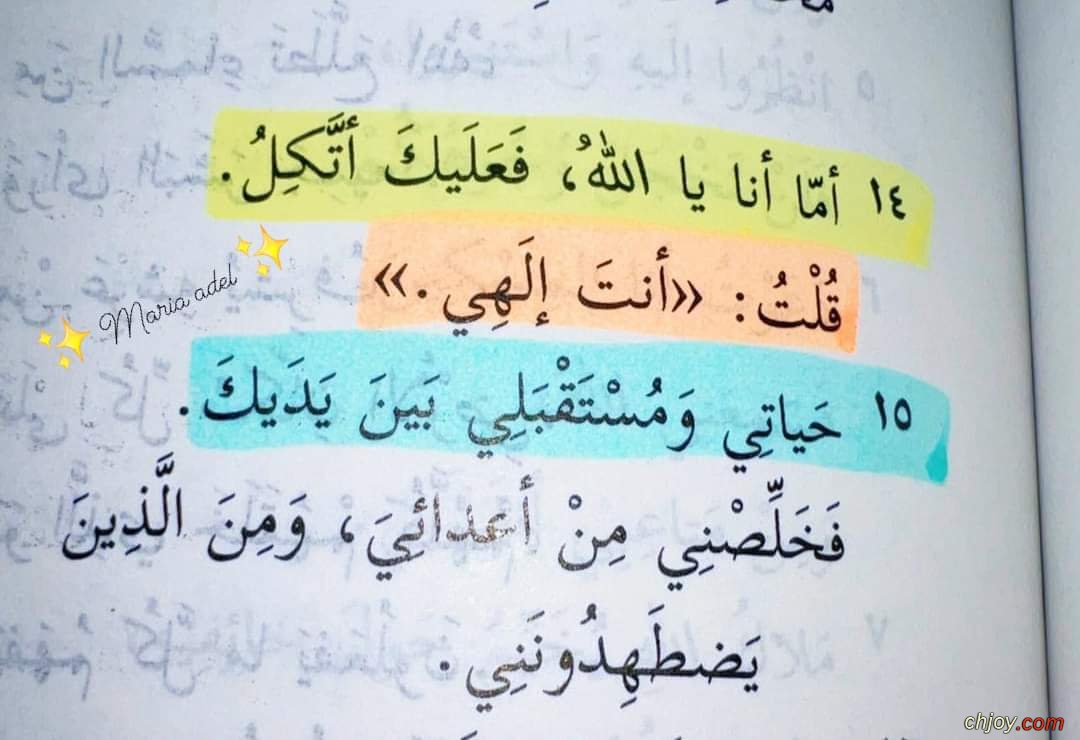 ١٤ أمّا أنا يا اللهُ، فَعَلَيكَ أتَّكِلُ.
قُلْتُ: «أنتَ إلَهِي.»
Maria adel
١٥ حَياتِي وَمُسْتَقْبَلِي بَينَ يَدَيكَ.
فَخَلِّصْنِي مِنْ أعدائِيَ، وَمِنَ الَّذِينَ
يَضطَهِدُونَنِي.
chjoy.com